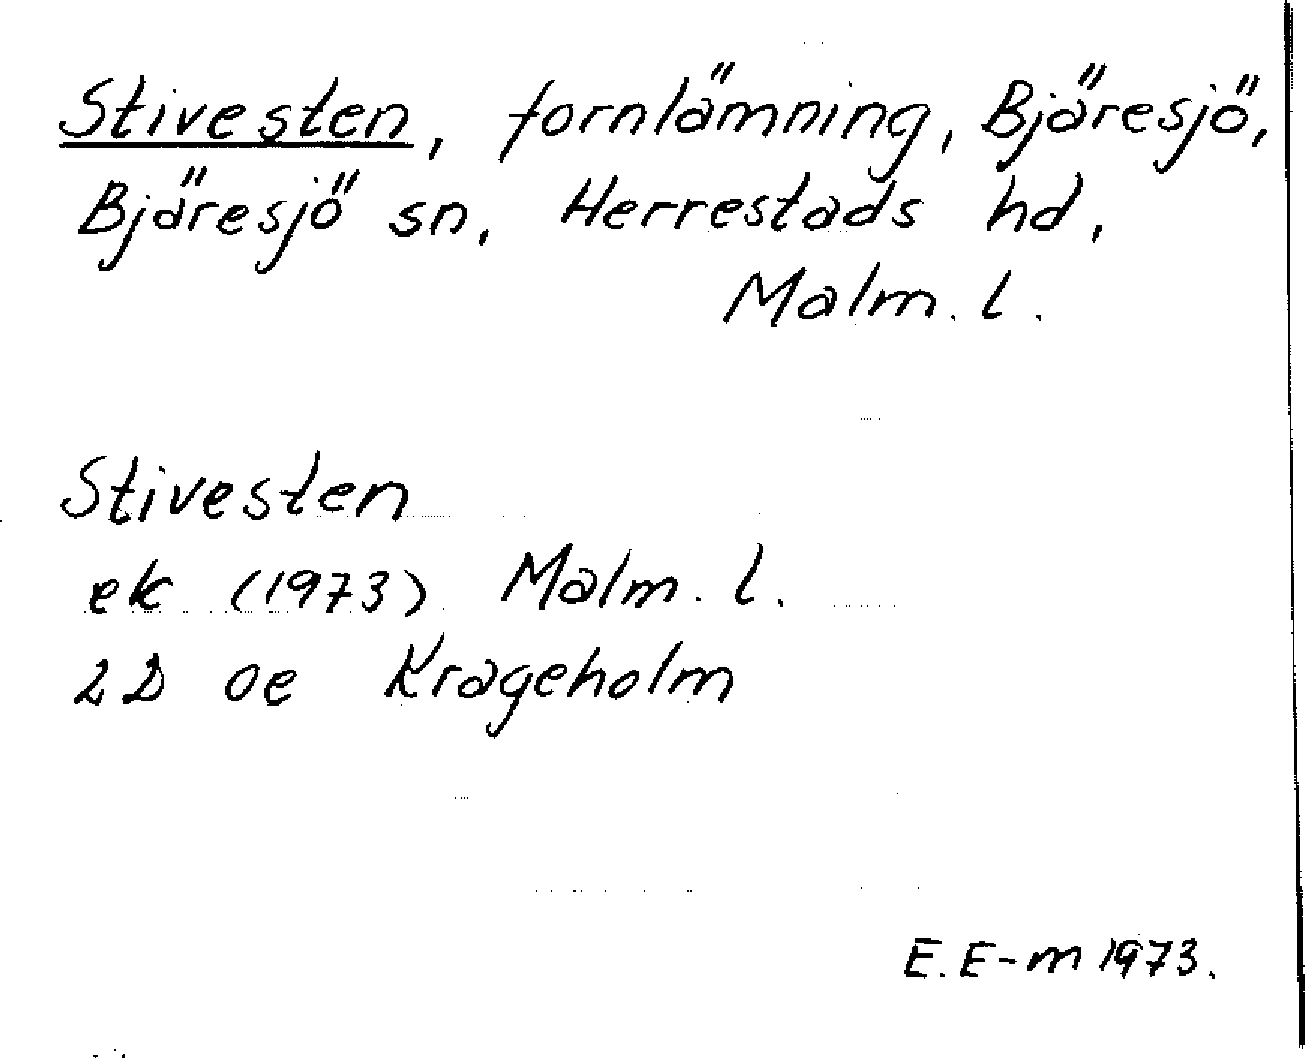 Stivesten, fornlämning, Bjäresjö,
Bjäresjö sn, Herrestads hd,
Malm. l.
Stivesten
ek (1973) Malm. l.
2D oe Krageholm
E. E-m 1973.